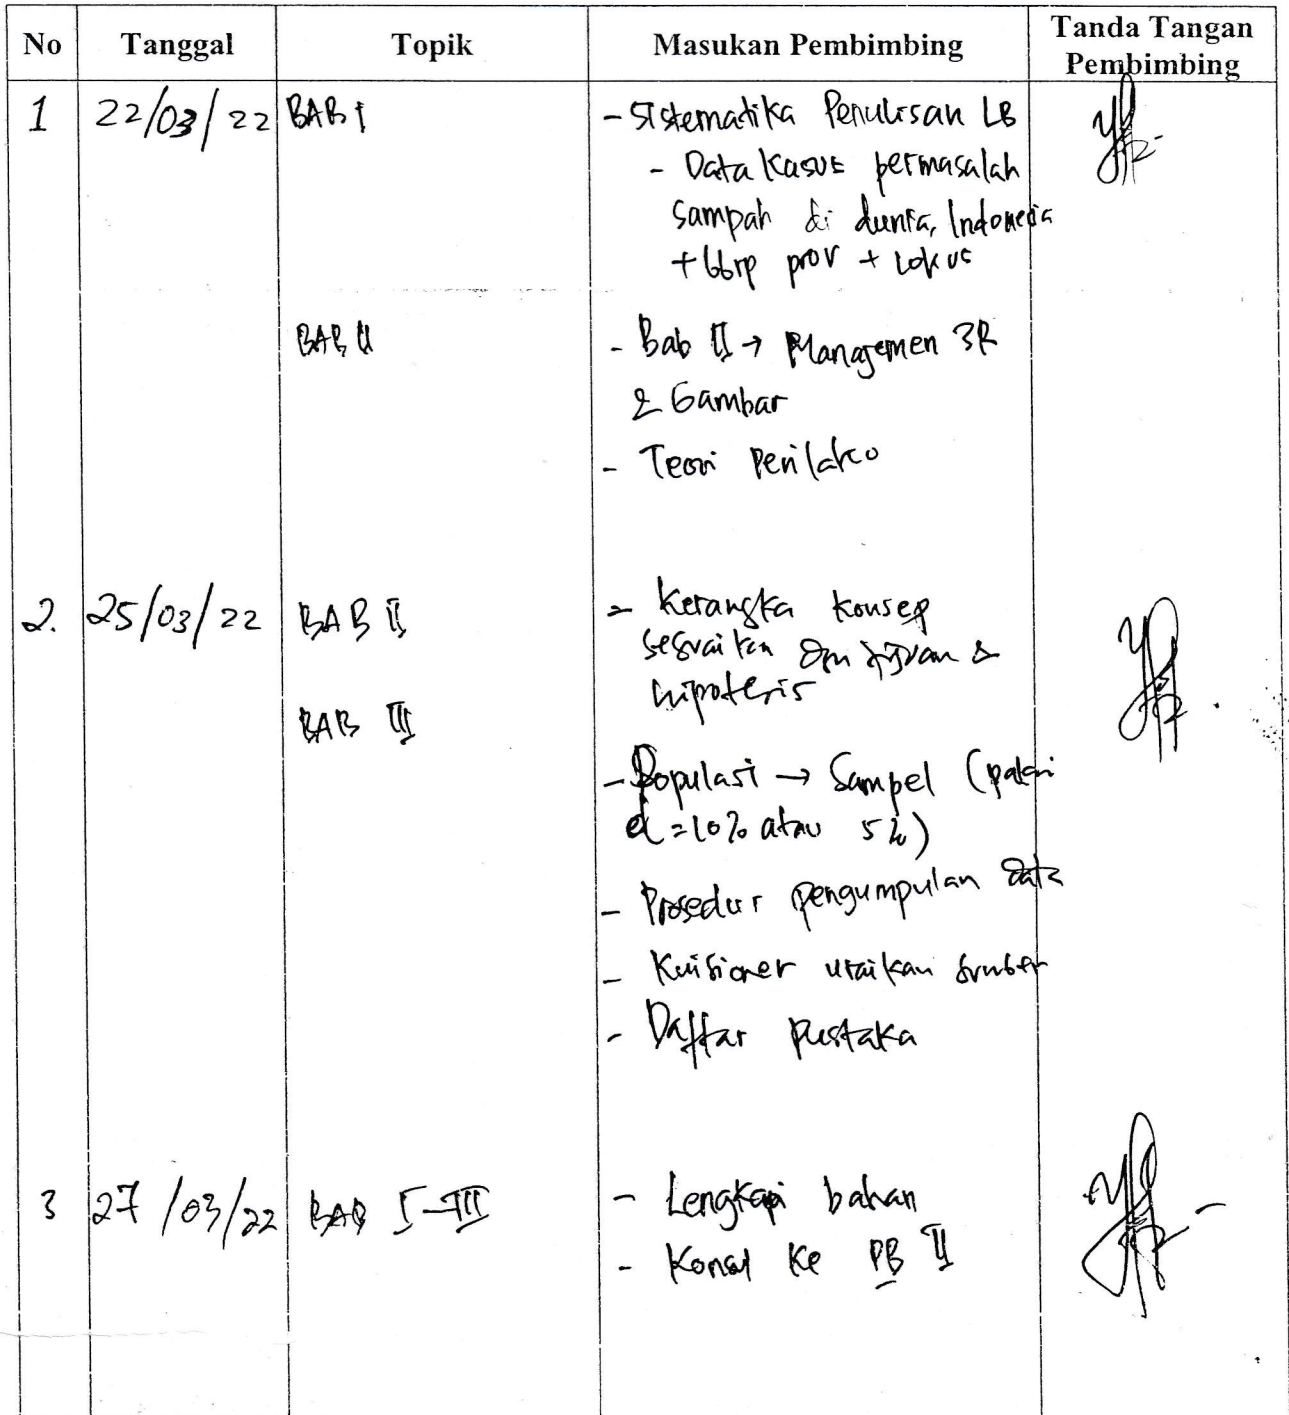 No Tanggal Topik Masukan Pembimbing Tanda Tangan Pembimbing
1 22/03/22 BAB I - Sistematika Penulisan LB
- Data Kasus permasalah
sampah di dunia, Indonesia
+ prov + Lokus
BAB II - Bab II → Manajemen 3R
& Gambar
- Teori Perilaku
2. 25/03/22 BAB II - Kerangka konsep
sesuaikan dgn tujuan &
hipotesis
BAB III
- Populasi → Sampel (pakai
d = 10% atau 5%)
- Prosedur pengumpulan data
- Kuisioner uraikan sumber
- Daftar Pustaka
3 27/03/22 BAB I-III - Lengkapi bahan
- Konsul Ke PB II